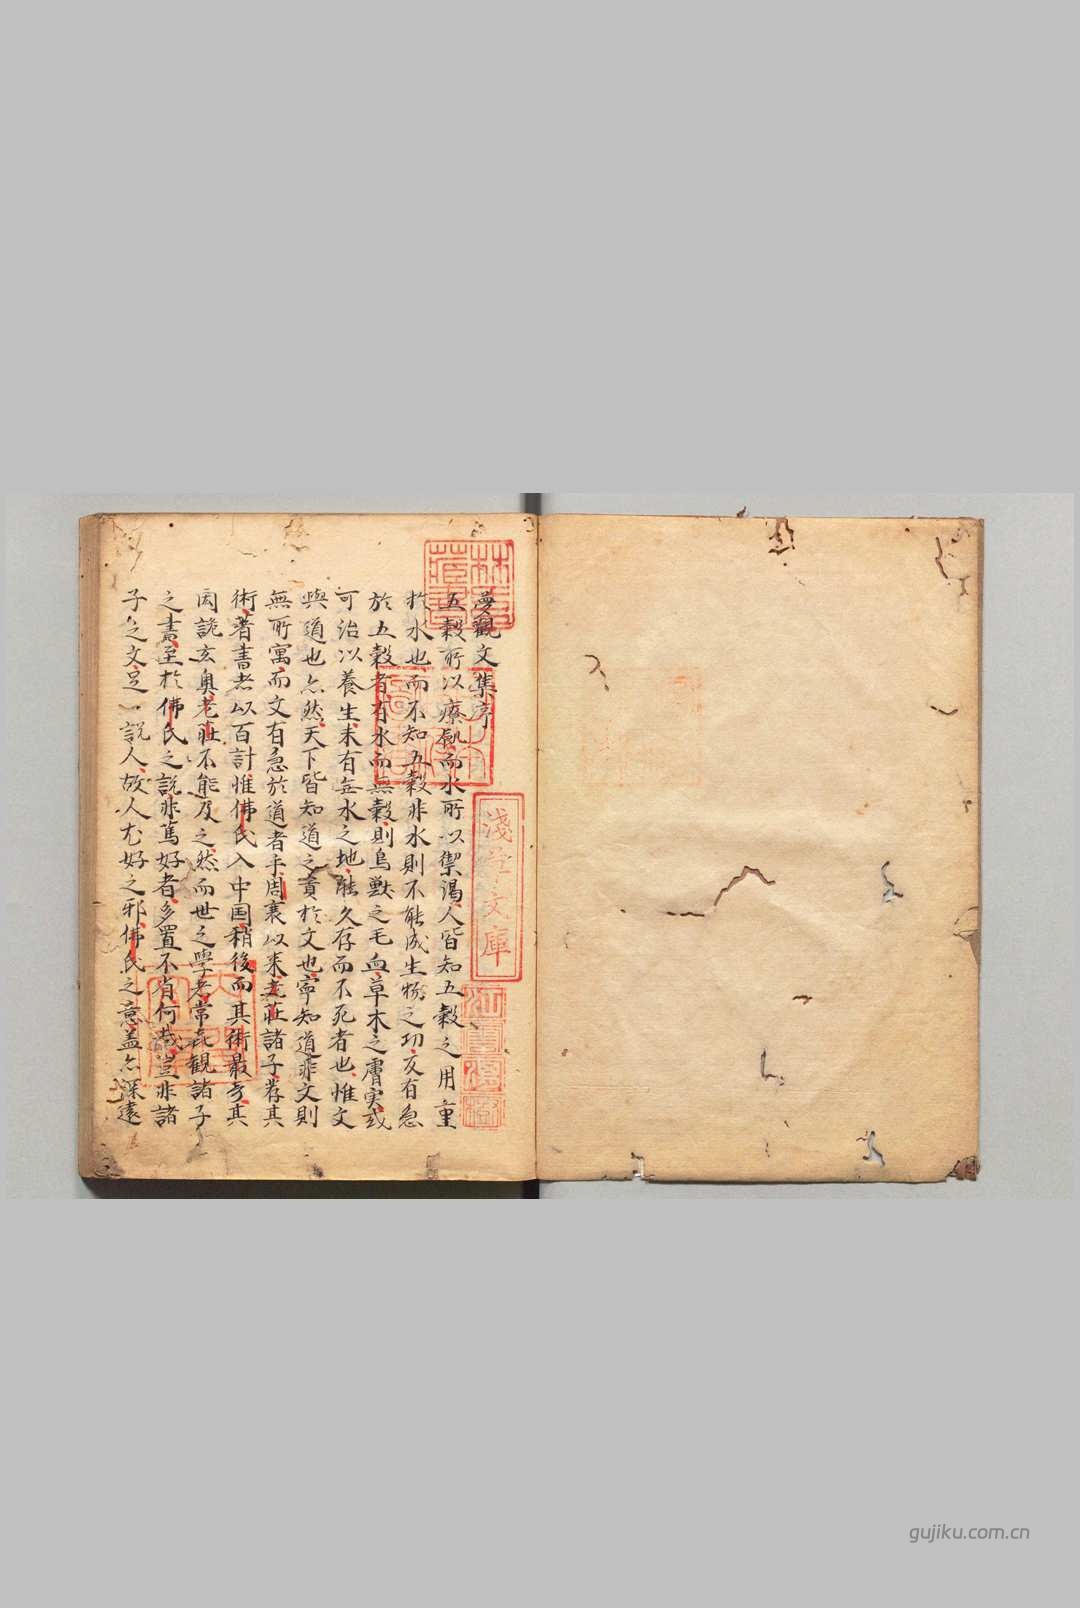 夢觀文集序
五穀所以療飢而水所以禦渴人皆知五穀之用重
於水也而不知五穀非水則不能成生物之功反有急
於五穀者有水而無穀則鳥獸之毛血草木之膚实或
可治以養生未有無水之地能久存而不死者也惟文
與道也亦然天下皆知道之貴於文也寧知道非文則
無所寓而文有急於道者乎周衰以来老莊諸子各其
術著書者以百計惟佛氏入中国稍後而其術最奇其
閎詭玄奥老莊不能及之然而世之學者常喜觀諸子
之書至於佛氏之說非篤好者多置不省何哉豈非諸
子之文足以說人故人尤好之邪佛氏之意盖亦深遠
林氏藏書
淺草文庫
日本政府圖書
gujiku.com.cn